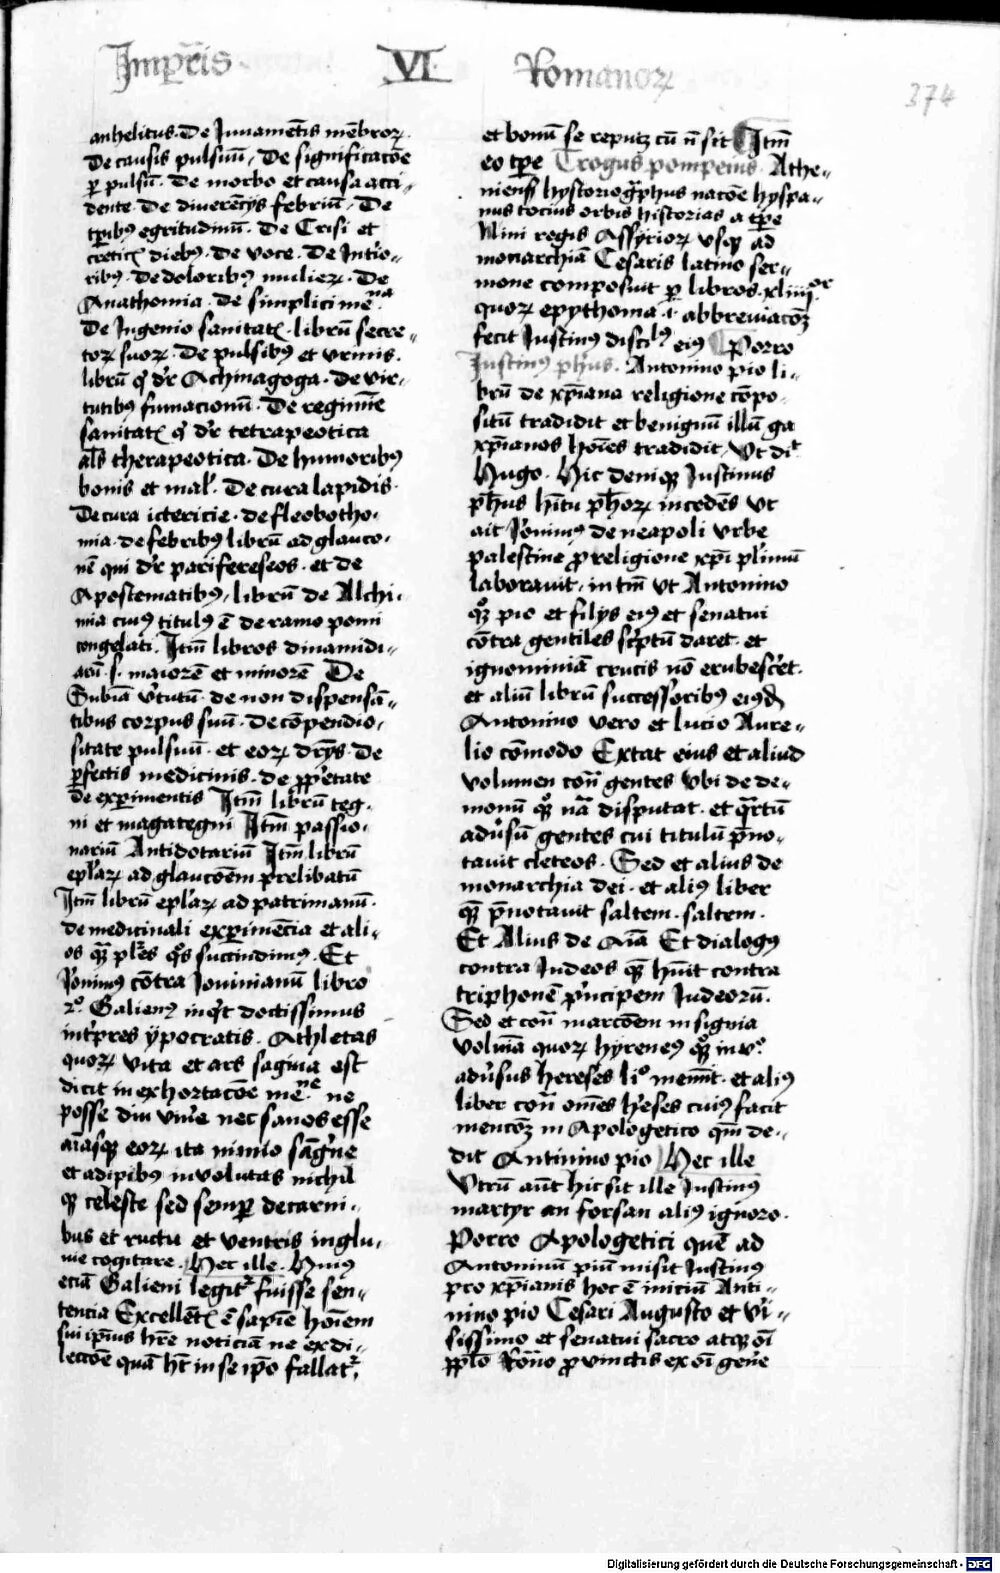 Imꝑis VI Romanoꝝ
374
anhelitus. De Iuuamētis mēbroꝝ
De causis pulsuū, De significatōe
ꝑ pulsū. De morbo et causa acci-
dente. De diuerētijs febriū, De
tp̄ibꝯ egritudinū. De Crisi et
creticꝭ diebꝯ. De voce. De Intio-
ribꝯ. De doloribꝯ mulieꝝ. De
Anathomia. de simplici meᵈⁿᵃ
De Ingenio sanitatꝭ. librū secre-
toꝝ suoꝝ. De pulsibꝯ et vrinis.
librū qͥ dr̄ Achinagoga. de vir-
tutibꝯ fumacionū. De regimīe
sanitatꝭ qͥ dr̄ tetrapeotica
als̄ therapeotica. De humoribꝯ
bonis et mal̄. De cura lapidis.
De cura ictericie. de fleobotho-
mia. de febribꝯ librū ad glauco-
nē qui dr̄ parifereseos. et de
Apostematibꝯ, librū de Alchi-
mia cuiꝯ titulꝯ ē de ramo pomi
congelati. Itm̄ libros dinamidi-
arū .s. maiorē et minorē De
Subiā v̄tutū. de non dispensā-
tibus corpus suū. de cōpendio-
sitate pulsuū. et eoꝝ dr̄ijs. de
ꝑfectis medicinis. de ꝓpͥetate
de exꝑimentis Itm̄ librū teg-
ni et magategni Itm̄ passio-
nariū Antidotariū Itm̄ librū
epl̄aꝝ ad glaucōem prelibatū
Itm̄ librū epl̄aꝝ ad patrimanū.
de medicinali exꝑimēcia et ali-
os qͣꝫ pl̄es qͦs succindimꝯ. Et
Ieronimꝯ cōtra Iouinianū libro
2º. Galienꝯ inqͥt doctissimus
intp̄res ypocratis. Athletas
quoꝝ vita et ars sagina est
dicit in exhortacōe meⁿᵉ ne
posse diu viuͤe nec sanos esse
aīasqꝫ eoꝝ ita nimio sāgͥne
et adipibꝯ inuolutas nichil
qꝫ celeste sed semꝑ de carni-
bus et ructu et ventris inglu-
uie cogitare. Hec ille. Huiꝯ
eciā Galieni legitͬ fuisse sen-
tencia Excellētꝭ ē sapiē hōiem
sui ip̄ius hr̄e noticiā ne ex di-
lectōe quā hꝫ in se ip̄o fallatͬ,
et bonū se reputꝫ cū n̄ sit Itm̄
eo tp̄e Trogus pompeius. Athe-
niens̄ hystoriogͣphus nacōe hyspa-
nus tocius orbis historias a tp̄e
Nini regis Assyrioꝝ vsqꝫ ad
monarchiā Cesaris latino ser-
mone composuit ꝑ libros .xliiijᵒʳ
quoꝝ epythoma .i. abbreuiacōꝫ
fecit Iustinꝯ discil̄ꝯ eiꝯ Porro
Iustinꝯ ph̄us. Antonino pio li-
brū de xp̄iana religione cōpo-
situ tradidit et benignū illū ga
xp̄ianos hoīes tradidit, Vt di͛
Hugo. Hic deniqꝫ Iustinus
ph̄us hītu ph̄oꝝ incedēs vt
ait Ieronimꝯ de neapoli vrbe
palestine ꝓ religione xp̄i pl̄imū
laborauit, in tm̄ vt Antonino
qͦꝫ pio et filijs eiꝯ et senatui
cōtra gentiles sc̄ptū daret. et
ignominiā crucis nō erubescͤet.
et aliū librū successoribꝯ eiꝯd̄
Antonino vero et lucio Aure-
lio cōmodo Extat eius et aliud
volumen con̄ gentes vbi de de-
monū qͦꝫ nā disputat. et qͣrtū
adūsū gentes cui titulū p̄no-
tauit eleteos. Sed et alius de
monarchia dei. et aliꝯ liber
quē p̄notauit saltem. saltem.
Et Alius de Aīa Et dialogꝯ
contra Iudeos quē hūit contra
triphonē pͥncipem Iudeorū.
Sed et con̄ marcōem insignia
volūīa quoꝝ hyreneꝯ qͦꝫ in vͦ.
adūsus hereses liº memīt. et aliꝯ
liber con̄ om̄es hͤses cuiꝯ facit
mentcōꝫ in Apologetico quē de-
dit Antinino pio Hec ille
Vtrū aūt hic sit ille Iustinꝯ
martyr an forsan aliꝯ ignoro.
Porro Apologetici quē ad
Antoninū piū misit Iustinꝯ
pro xp̄ianis hoc ē iniciū Anti-
nino pio Cesari Augusto et vͥi-
sissimo et senatui sacro atqꝫ oī
ꝓpl̄o Rōno ꝓuinctis ex oī genͤe